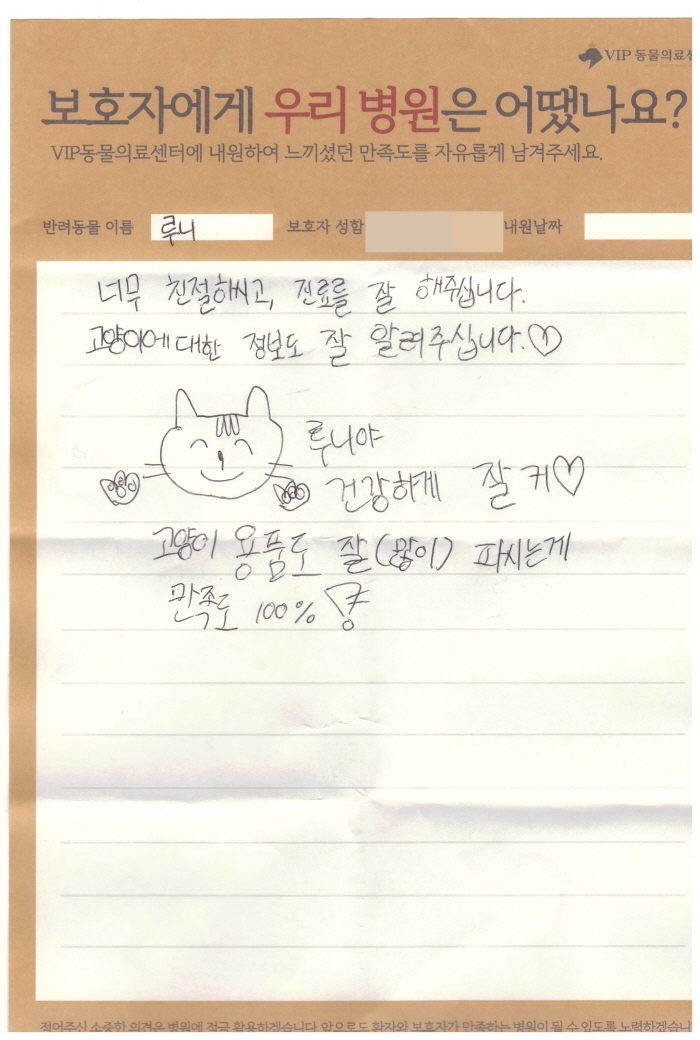 VIP 동물의료센
보호자에게 우리 병원은 어땠나요?
VIP동물의료센터에 내원하여 느끼셨던 만족도를 자유롭게 남겨주세요.
반려동물 이름 루니 보호자 성함 내원날짜
너무 친절하시고, 진료를 잘 해주십니다.
고양이에 대한 정보도 잘 알려주십니다.♡
루니야
건강하게 잘 커♡
고양이 용품도 잘(많이) 파시는게
만족도 100%
적어주신 소중한 의견은 병원에 적극 활용하겠습니다 앞으로도 환자와 보호자가 만족하는 병원이 될 수 있도록 노력하겠습니